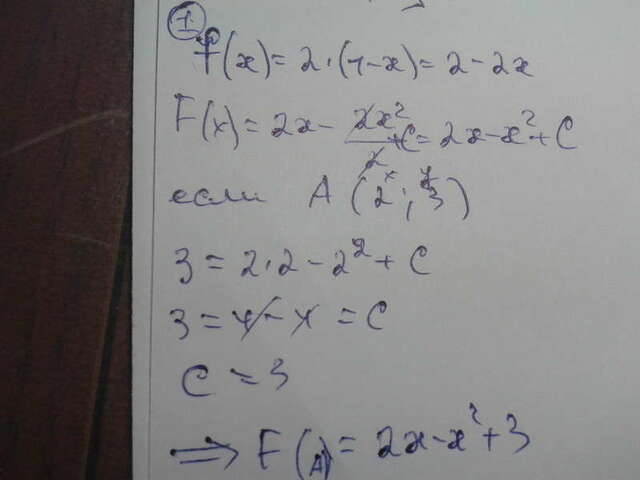 1
f(x) = 2·(1-x) = 2-2x
F(x) = 2x - 2x²/2 + C = 2x-x²+C
если A (2; 3)
x y
3 = 2·2-2²+C
3 = 4-4 = C
C = 3
⟹ F(A) = 2x-x²+3